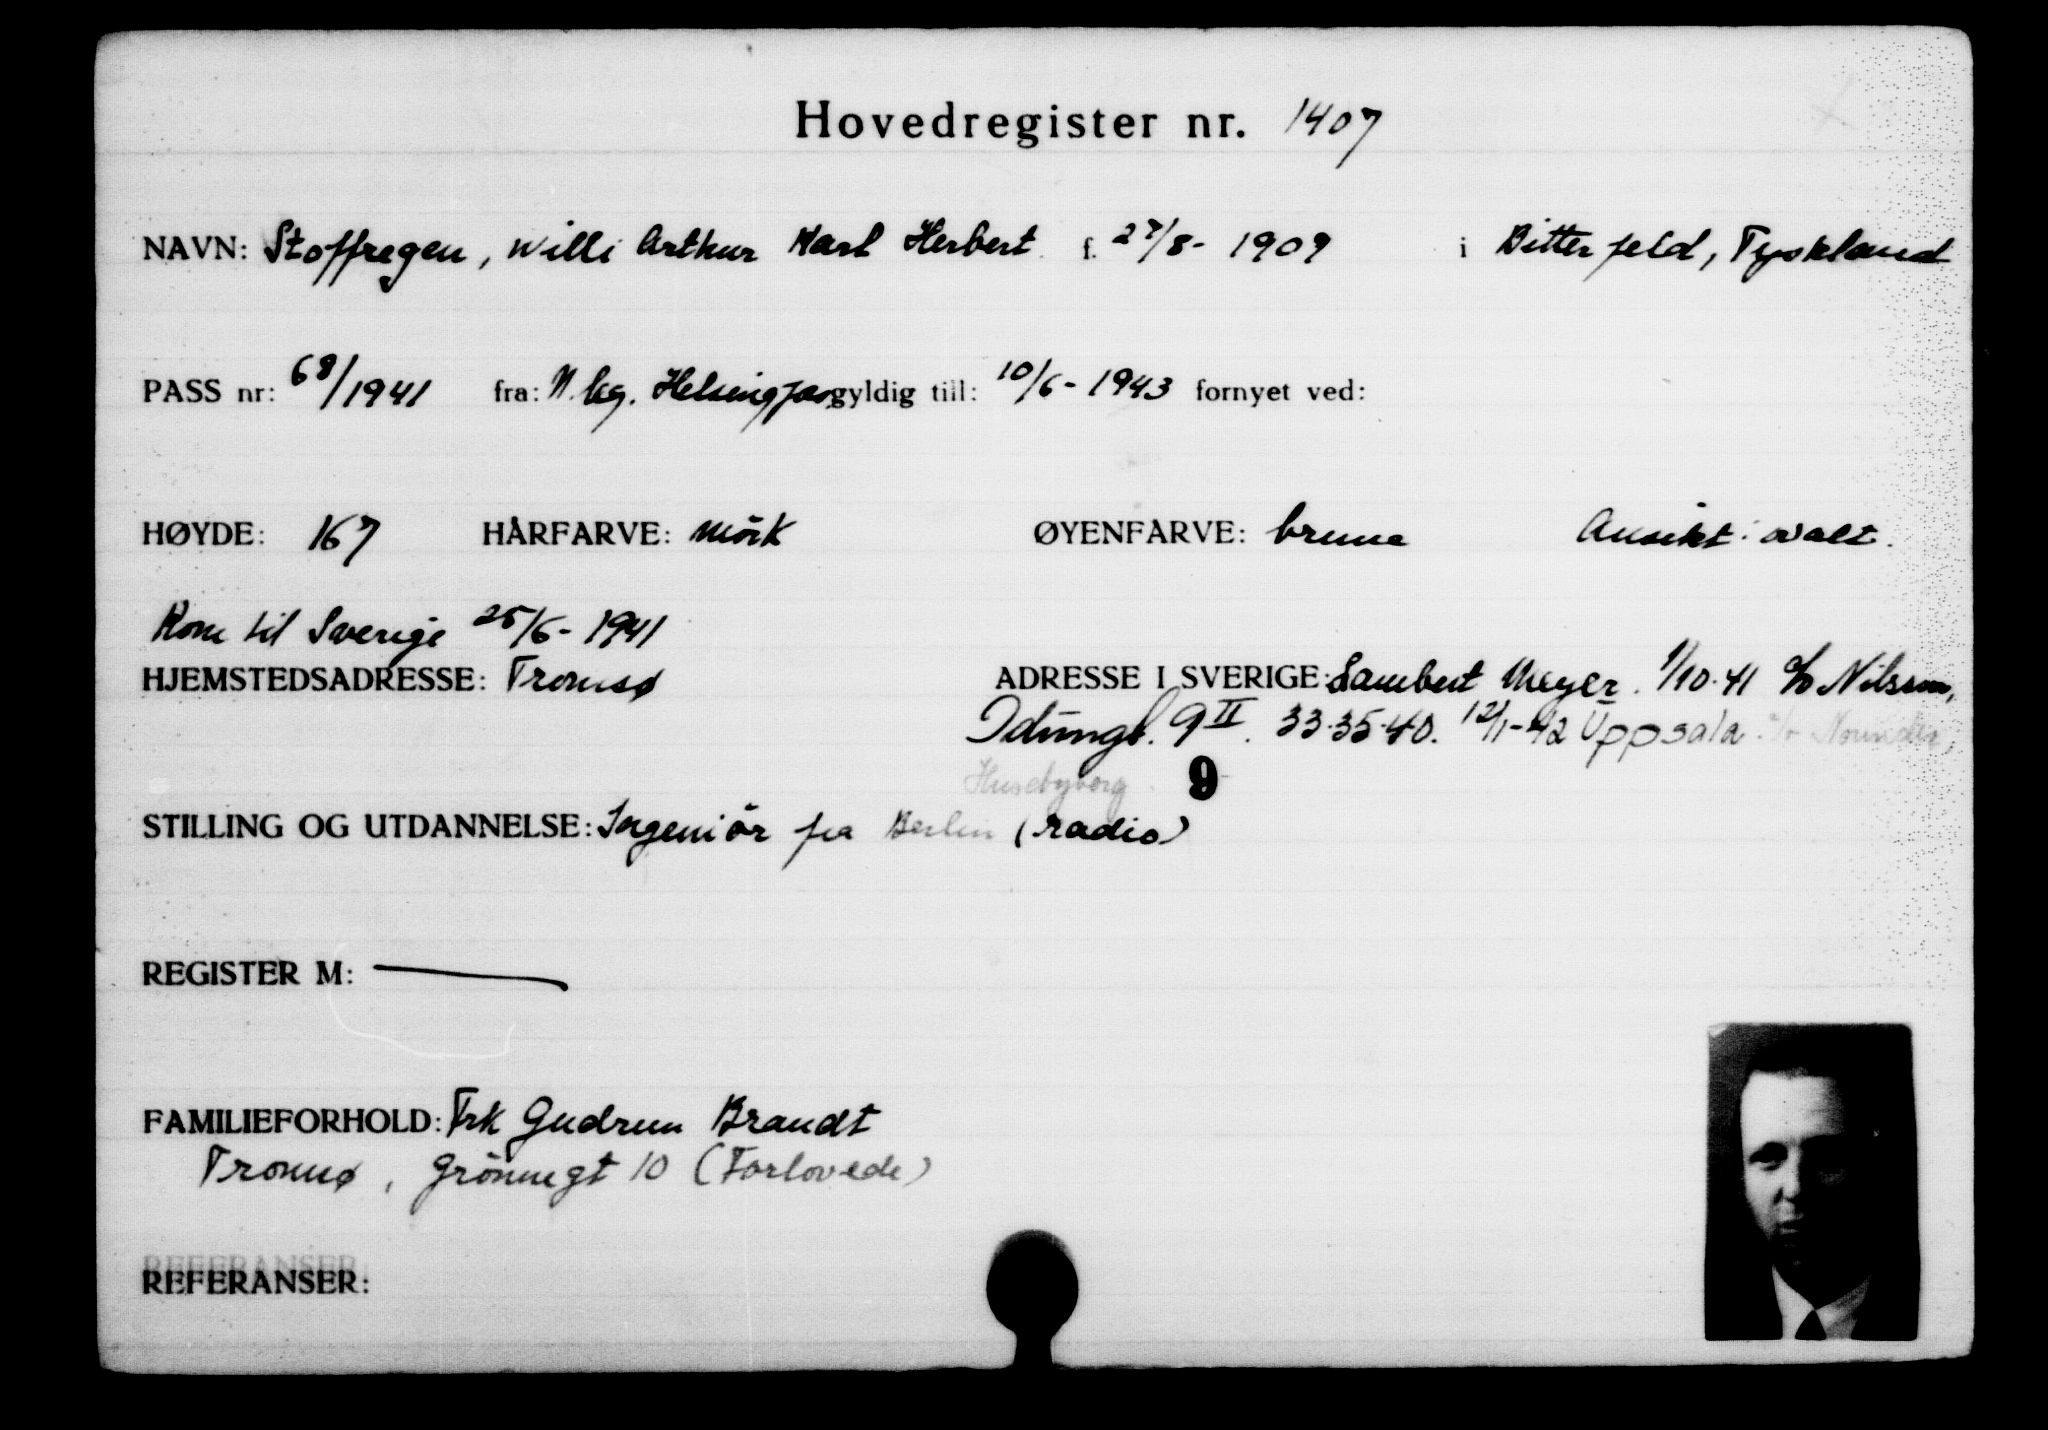 Hovedregister nr. 1407
NAVN: Stoffregen, Willi Arthur Karl Herbert f. 27/8- 1909 i Bitterfeld, Tyskland
PASS nr: 68/1941 fra: N. leg. Helsingfors gyldig till: 10/6- 1943 fornyet ved:
HØYDE: 167 HÅRFARVE: mörk ØYENFARVE: brune Ansikt: ovalt.
Kom til Sverige 25/6- 1941
HJEMSTEDSADRESSE: Tromsø ADRESSE I SVERIGE: Lambert Meyer. 1/10-41 c/o Nilsson,
Idungt. 9 II. 33.35.40. 12/1-42 Uppsala c/o
Husebyborg 9
STILLING OG UTDANNELSE: Ingeniör fra Berlin (radio)
REGISTER M: —
FAMILIEFORHOLD: Frk Gudrun Brandt
Tromsø, Grönnegt 10 (Forlovede)
REFERANSER: